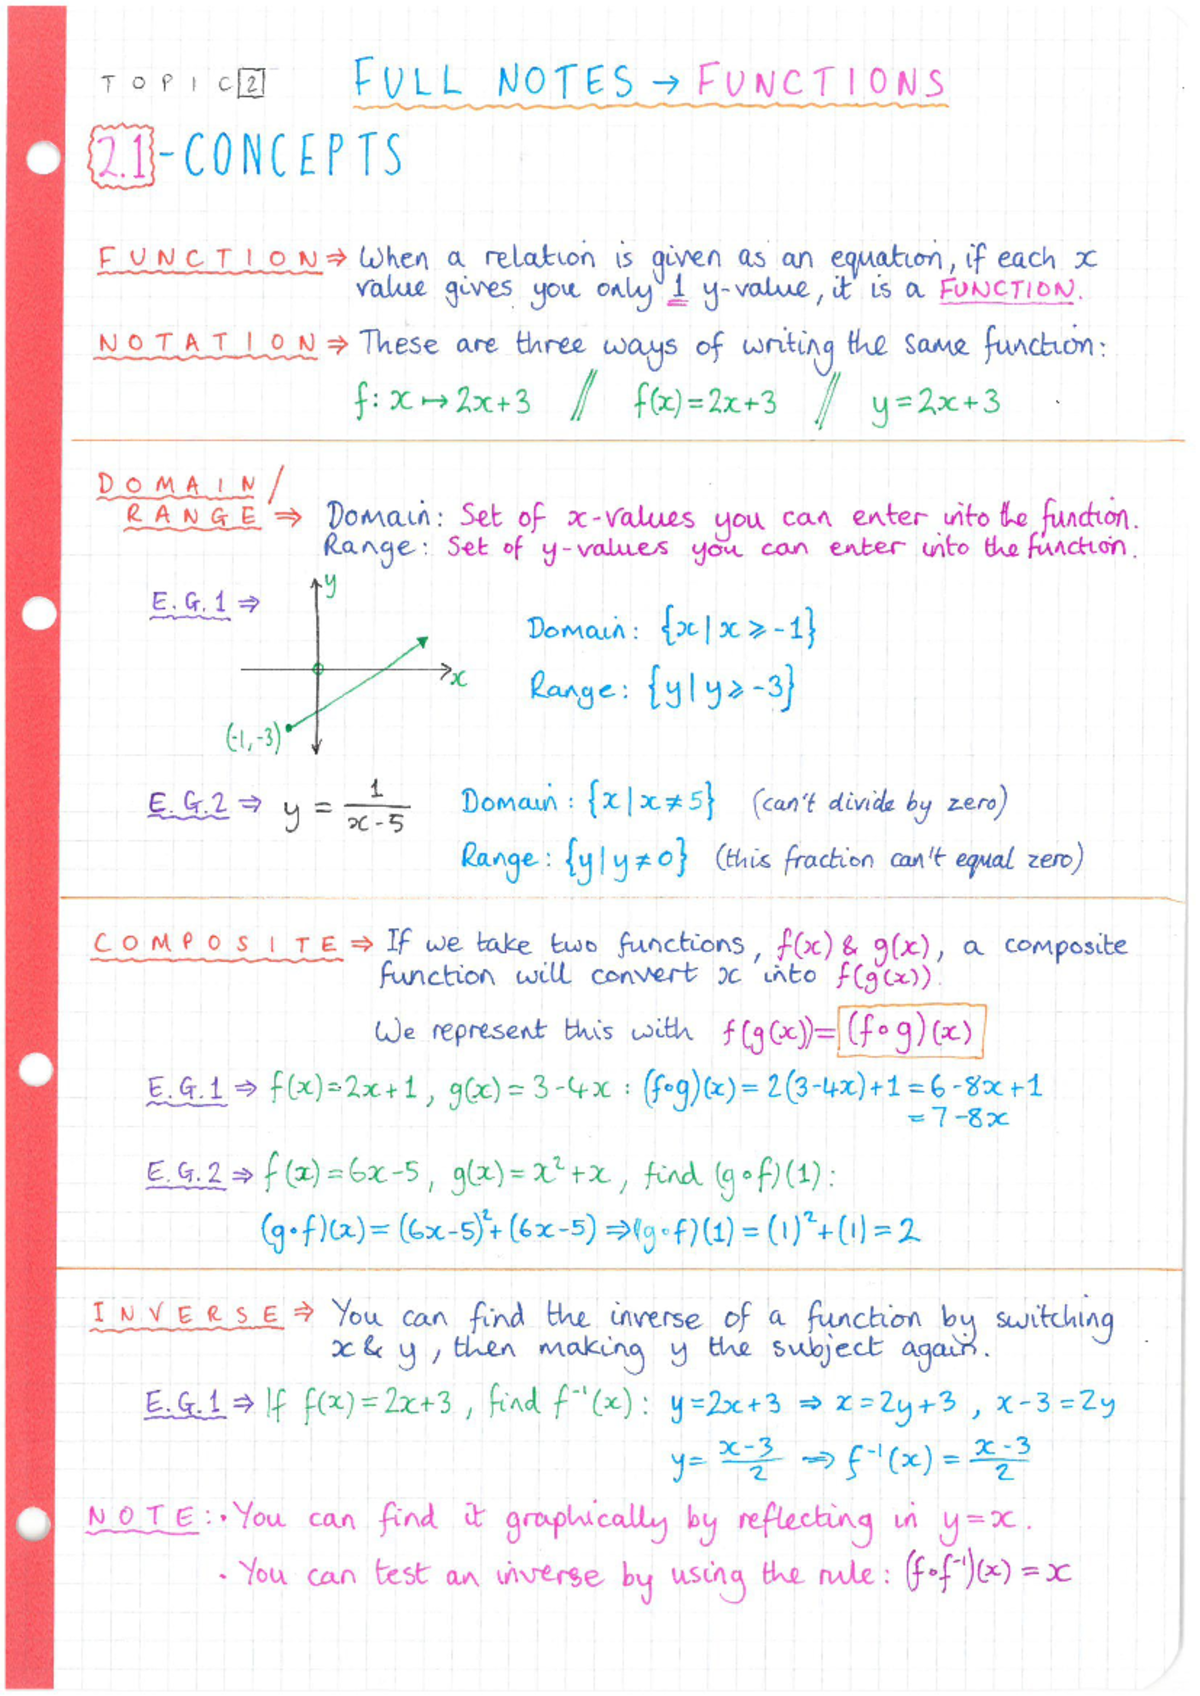 TOPIC 2 FULL NOTES → FUNCTIONS
2.1 - CONCEPTS
FUNCTION ⇒ When a relation is given as an equation, if each x
value gives you only 1 y-value, it is a FUNCTION.
NOTATION ⇒ These are three ways of writing the same function:
f: x ↦ 2x+3 // f(x)=2x+3 // y=2x+3
DOMAIN/
RANGE ⇒ Domain: Set of x-values you can enter into the function.
Range: Set of y-values you can enter into the function.
E.G.1 ⇒
y
x
(-1,-3)
Domain: {x | x ≥ -1}
Range: {y | y ≥ -3}
E.G.2 ⇒ y = 1/(x-5) Domain: {x | x ≠ 5} (can't divide by zero)
Range: {y | y ≠ 0} (this fraction can't equal zero)
COMPOSITE ⇒ If we take two functions, f(x) & g(x), a composite
function will convert x into f(g(x)).
We represent this with f(g(x)) = (f∘g)(x)
E.G.1 ⇒ f(x)=2x+1, g(x)=3-4x : (f∘g)(x) = 2(3-4x)+1 = 6-8x+1
= 7-8x
E.G.2 ⇒ f(x)=6x-5, g(x)=x²+x, find (g∘f)(1):
(g∘f)(x) = (6x-5)²+(6x-5) ⇒ (g∘f)(1) = (1)²+(1) = 2
INVERSE ⇒ You can find the inverse of a function by switching
x & y, then making y the subject again.
E.G.1 ⇒ If f(x)=2x+3, find f⁻¹(x): y=2x+3 ⇒ x=2y+3, x-3=2y
y = (x-3)/2 ⇒ f⁻¹(x) = (x-3)/2
NOTE: • You can find it graphically by reflecting in y=x.
• You can test an inverse by using the rule: (f∘f⁻¹)(x) = x